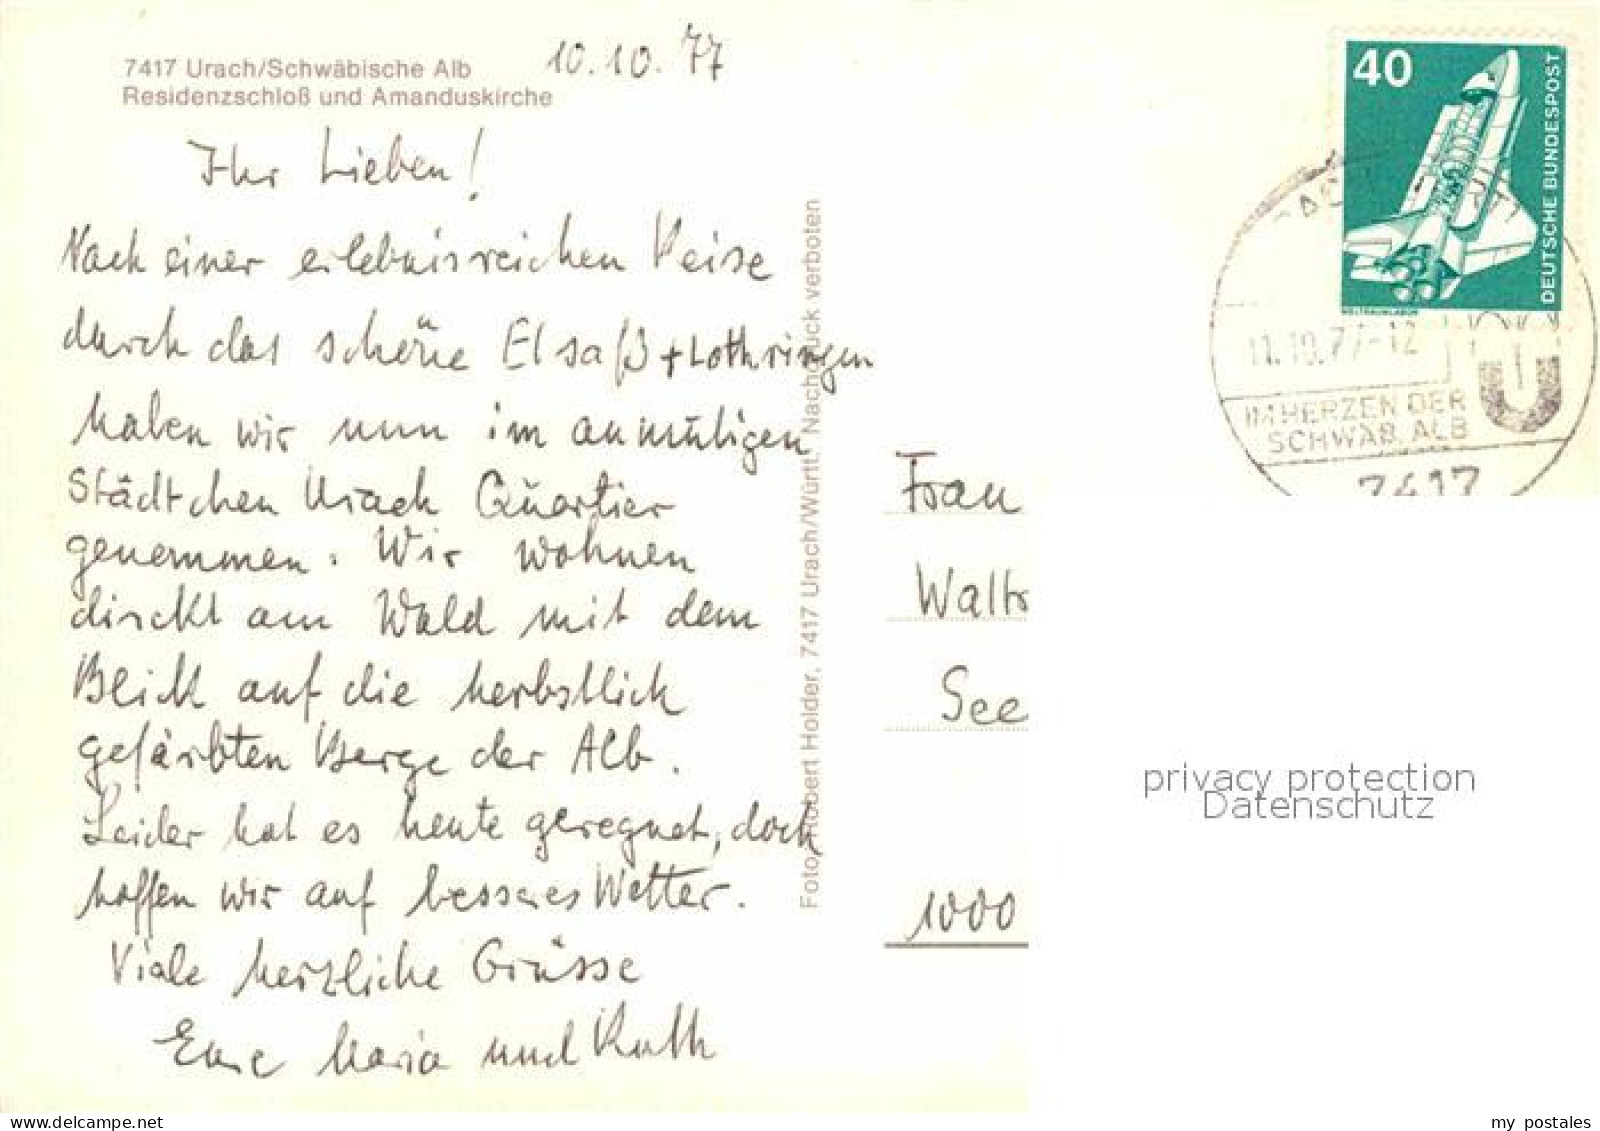 7417 Urach/Schwäbische Alb
Residenzschloß und Amanduskirche
10.10.77
Ihr Lieben!
Nach einer erlebnisreichen Reise
durch das schöne Elsaß + Lothringen
haben wir nun im anmutigen
Städtchen Urach Quartier
genommen. Wir wohnen
direkt am Wald mit dem
Blick auf die herbstlich
gefärbten Berge der Alb.
Leider hat es heute geregnet, doch
hoffen wir auf besseres Wetter.
Viele herzliche Grüsse
Eure Maria und Ruth
Foto: Robert Holder, 7417 Urach/Württ. Nachdruck verboten
40
DEUTSCHE BUNDESPOST
WELTRAUMLABOR
11.10.77-12
IM HERZEN DER
SCHWÄB. ALB
7417
Frau
Waltr
See
1000
privacy protection
Datenschutz
www.delcampe.net
my_postales